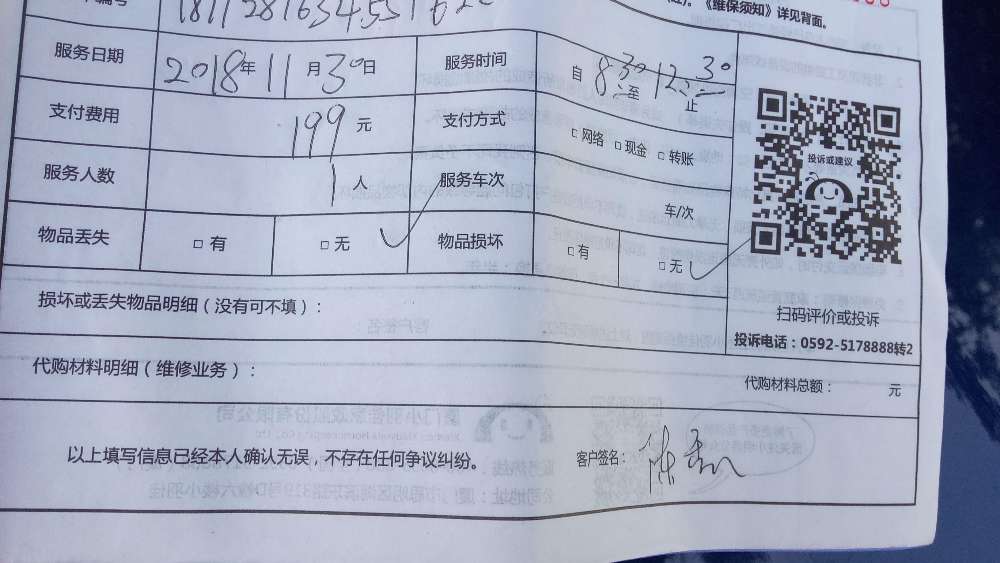 编号
《维保须知》详见背面。
服务日期 2018年11月30日 服务时间 自8:30至12:30止
支付费用 199元 支付方式 □网络 □现金 □转账
服务人数 1人 服务车次 车/次
物品丢失 □有 □无 ✓ 物品损坏 □有 □无 ✓
投诉或建议
扫码评价或投诉
投诉电话：0592-5178888转2
损坏或丢失物品明细（没有可不填）：
代购材料明细（维修业务）： 代购材料总额： 元
以上填写信息已经本人确认无误，不存在任何争议纠纷。 客户签名：